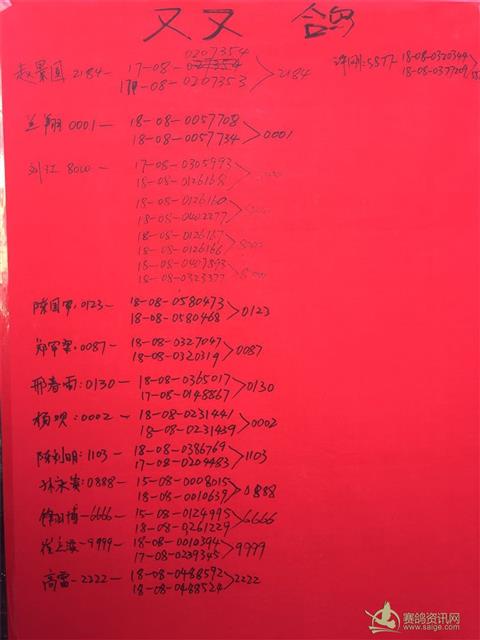 双双鸽
0207354
赵景国 2184 17-08-027354 >2184
17-08-0207353
许刚:5877 18-08-0320344
18-08-0377209
兰翔 0001- 18-08-0057708 >0001
18-08-0057734
刘江 8000 17-08-0305993
18-08-0126168
18-08-0126160
18-08-0402277
18-08-0126167
18-08-0126166
18-08-0407893
18-08-0323377
陈国军·0123- 18-08-0580473 >0123
18-08-0580468
郑军梁·0087- 18-08-0327047 >0087
18-08-0320319
邢春雨:0130- 18-08-0365017 >0130
17-08-0148867
杨呗:0002- 18-08-0231441 >0002
18-08-0231439
陈利明:1103- 18-08-0386769 >1103
17-08-0204483
:0888- 15-08-0008015 >0888
18-08-0010639
博-6666- 15-08-0124995 >6666
18-08-0261229
-9999- 18-08-0010394 >9999
17-08-0239345
高雷-2222- 18-08-0488592 >2222
18-08-0488524
赛鸽资讯网
www.saige.com